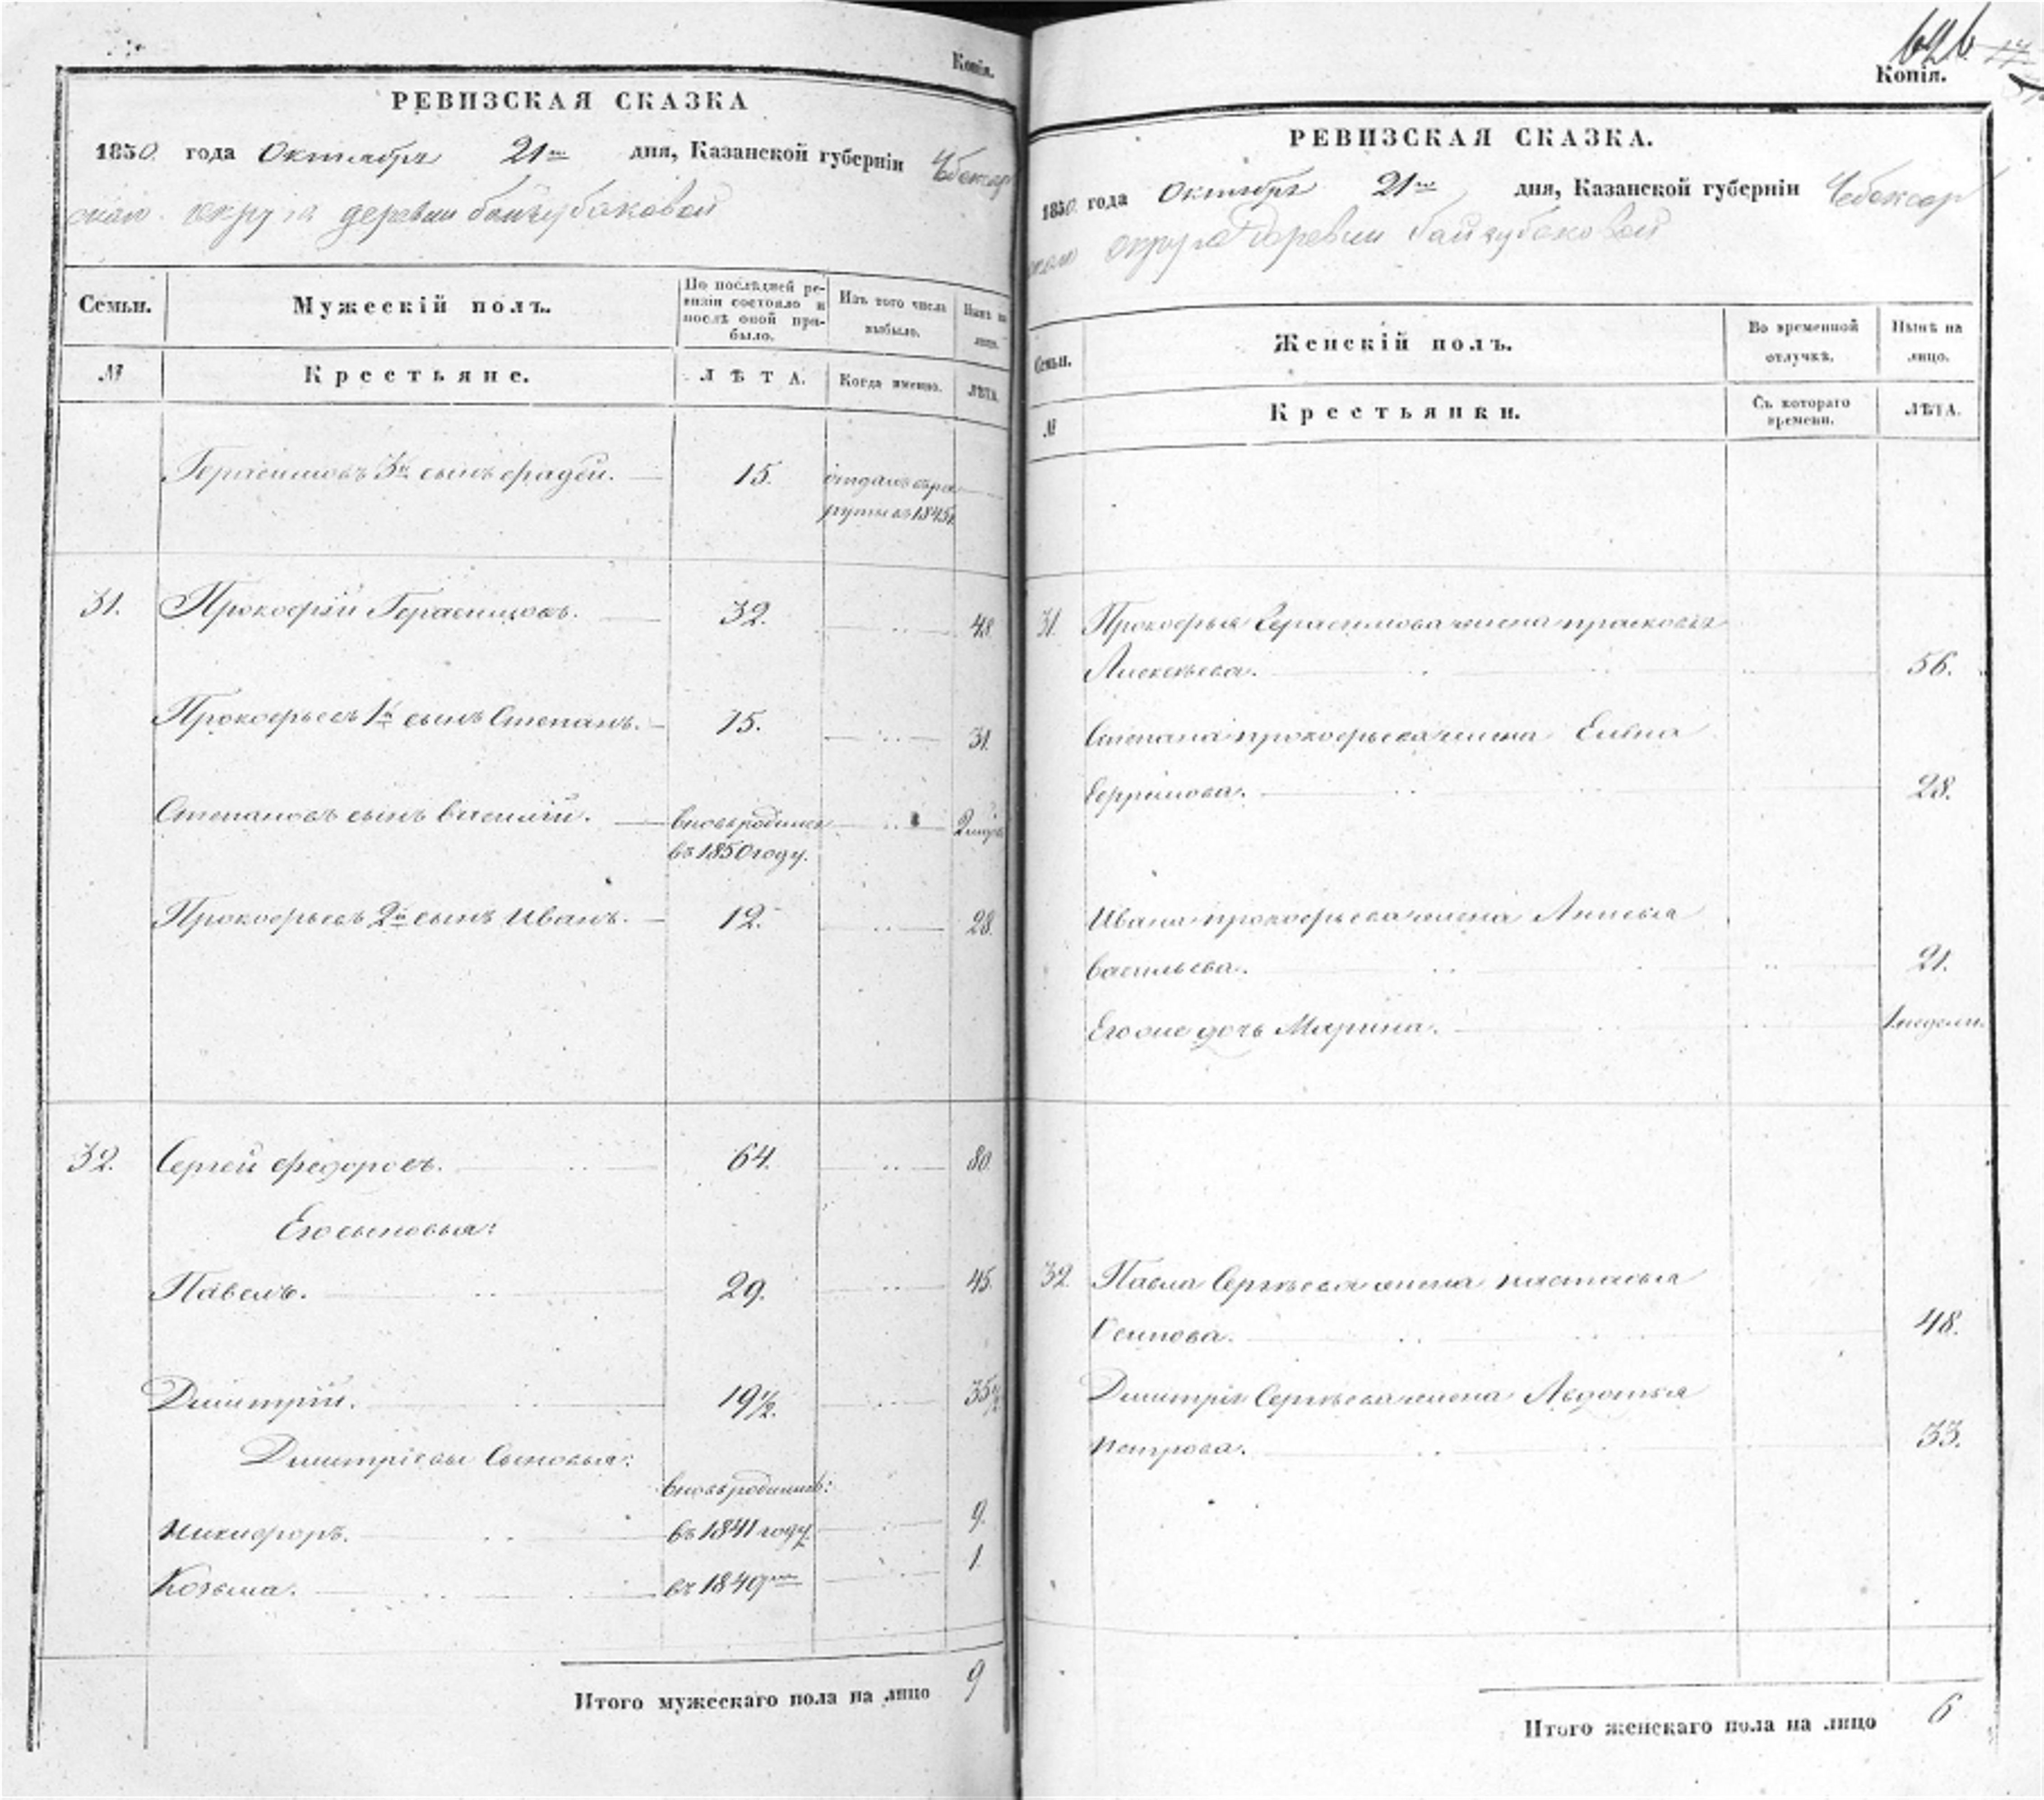 Копія.
РЕВИЗСКАЯ СКАЗКА
1850 года Октября 21го дня, Казанской губерніи Чебоксар
скаго округа деревни байгубаковой
Семьи.
Мужескій полъ.
По послѣдней ре-
визіи состояло и
послѣ оной при-
было.
Изъ того числа
выбыло.
Нынѣ на
лицо.
№
Крестьяне.
ЛѢТА.
Когда именно.
ЛѢТА.
Герасимовъ 3й сынъ фадей. 15. отданъ въ ре
круты въ 1845
31. Прокофій Герасимовъ. 32. 48.
Прокофьевъ 1й сынъ Степанъ. 15. 31.
Степановъ сынъ василій. вновь родился
въ 1850 году.
Прокофьевъ 2й сынъ Иванъ. 12. 28.
32. Сергей федоровъ. 64. 80.
Его сыновья:
Павелъ. 29. 45.
Дмитрій. 19 1/2. 35 1/2
Дмитріевы Сыновья:
вновь родились:
Никифоръ. въ 1841 году. 9.
Козьма. въ 1849мъ 1.
Итого мужескаго пола на лицо 9
626
Копія.
РЕВИЗСКАЯ СКАЗКА.
1850 года Октября 21го дня, Казанской губерніи Чебоксар
скаго округа деревни байгубаковой
Семьи.
Женскій полъ.
Во временной
отлучкѣ.
Нынѣ на
лицо.
№
Крестьянки.
Съ котораго
времени.
ЛѢТА.
31. Прокофья Герасимова жена прасковья
Алексѣева. 56.
Степана прокофьева жена Елена
Ефримова. 28.
Ивана прокофьева жена Анисья
васильева. 21.
Его же дочь Марина. 1 недели.
32. Павла Сергѣева жена настасья
Осипова. 48.
Дмитрія Сергѣева жена Авдотья
петрова. 33.
Итого женскаго пола на лицо 6